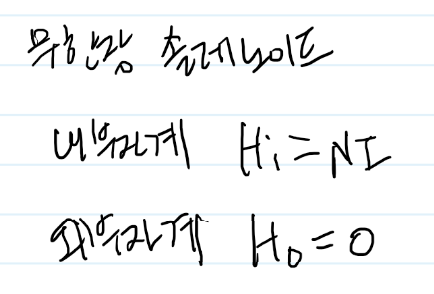 무한장 솔레노이드
내부자계 Hi = NI
외부자계 Ho = 0